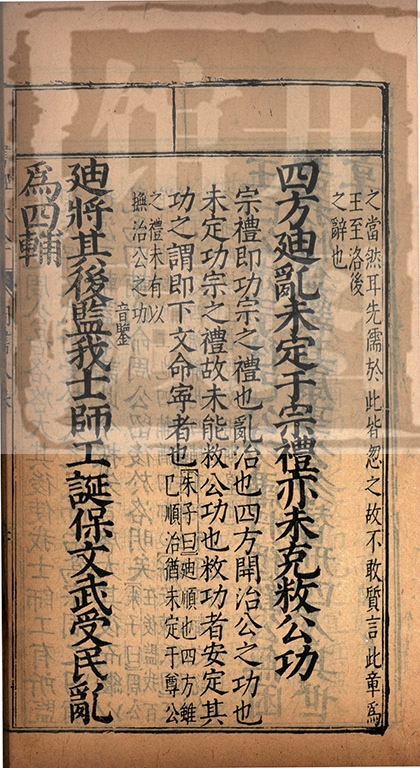 之當然耳先儒於此皆忽之故不敢質言此章爲
王至洛後
之辭也
四方廸亂未定于宗禮亦未克敉公功
宗禮即功宗之禮也亂治也四方開治公之功也
未定功宗之禮故未能敉公功也敉功者安定其
功之謂即下文命寧者也朱子曰廸順也四方雖
已順治猶未定于尊公
之禮未有以
撫治公之功
音鑒
廸將其後監我士師工誕保文武受民亂
爲四輔